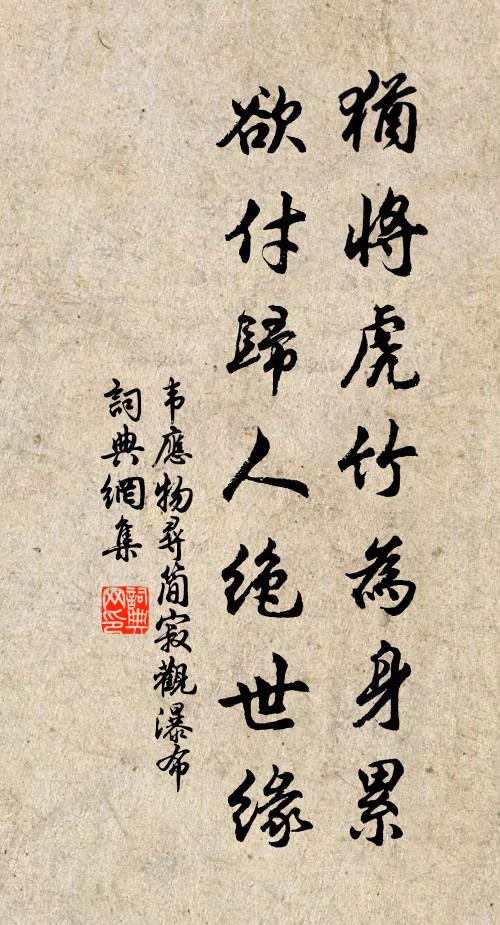 猶將虎竹為身累
欲付歸人絶世緣
韦應物尋簡寂觀瀑布
詞典網集
詞典网印